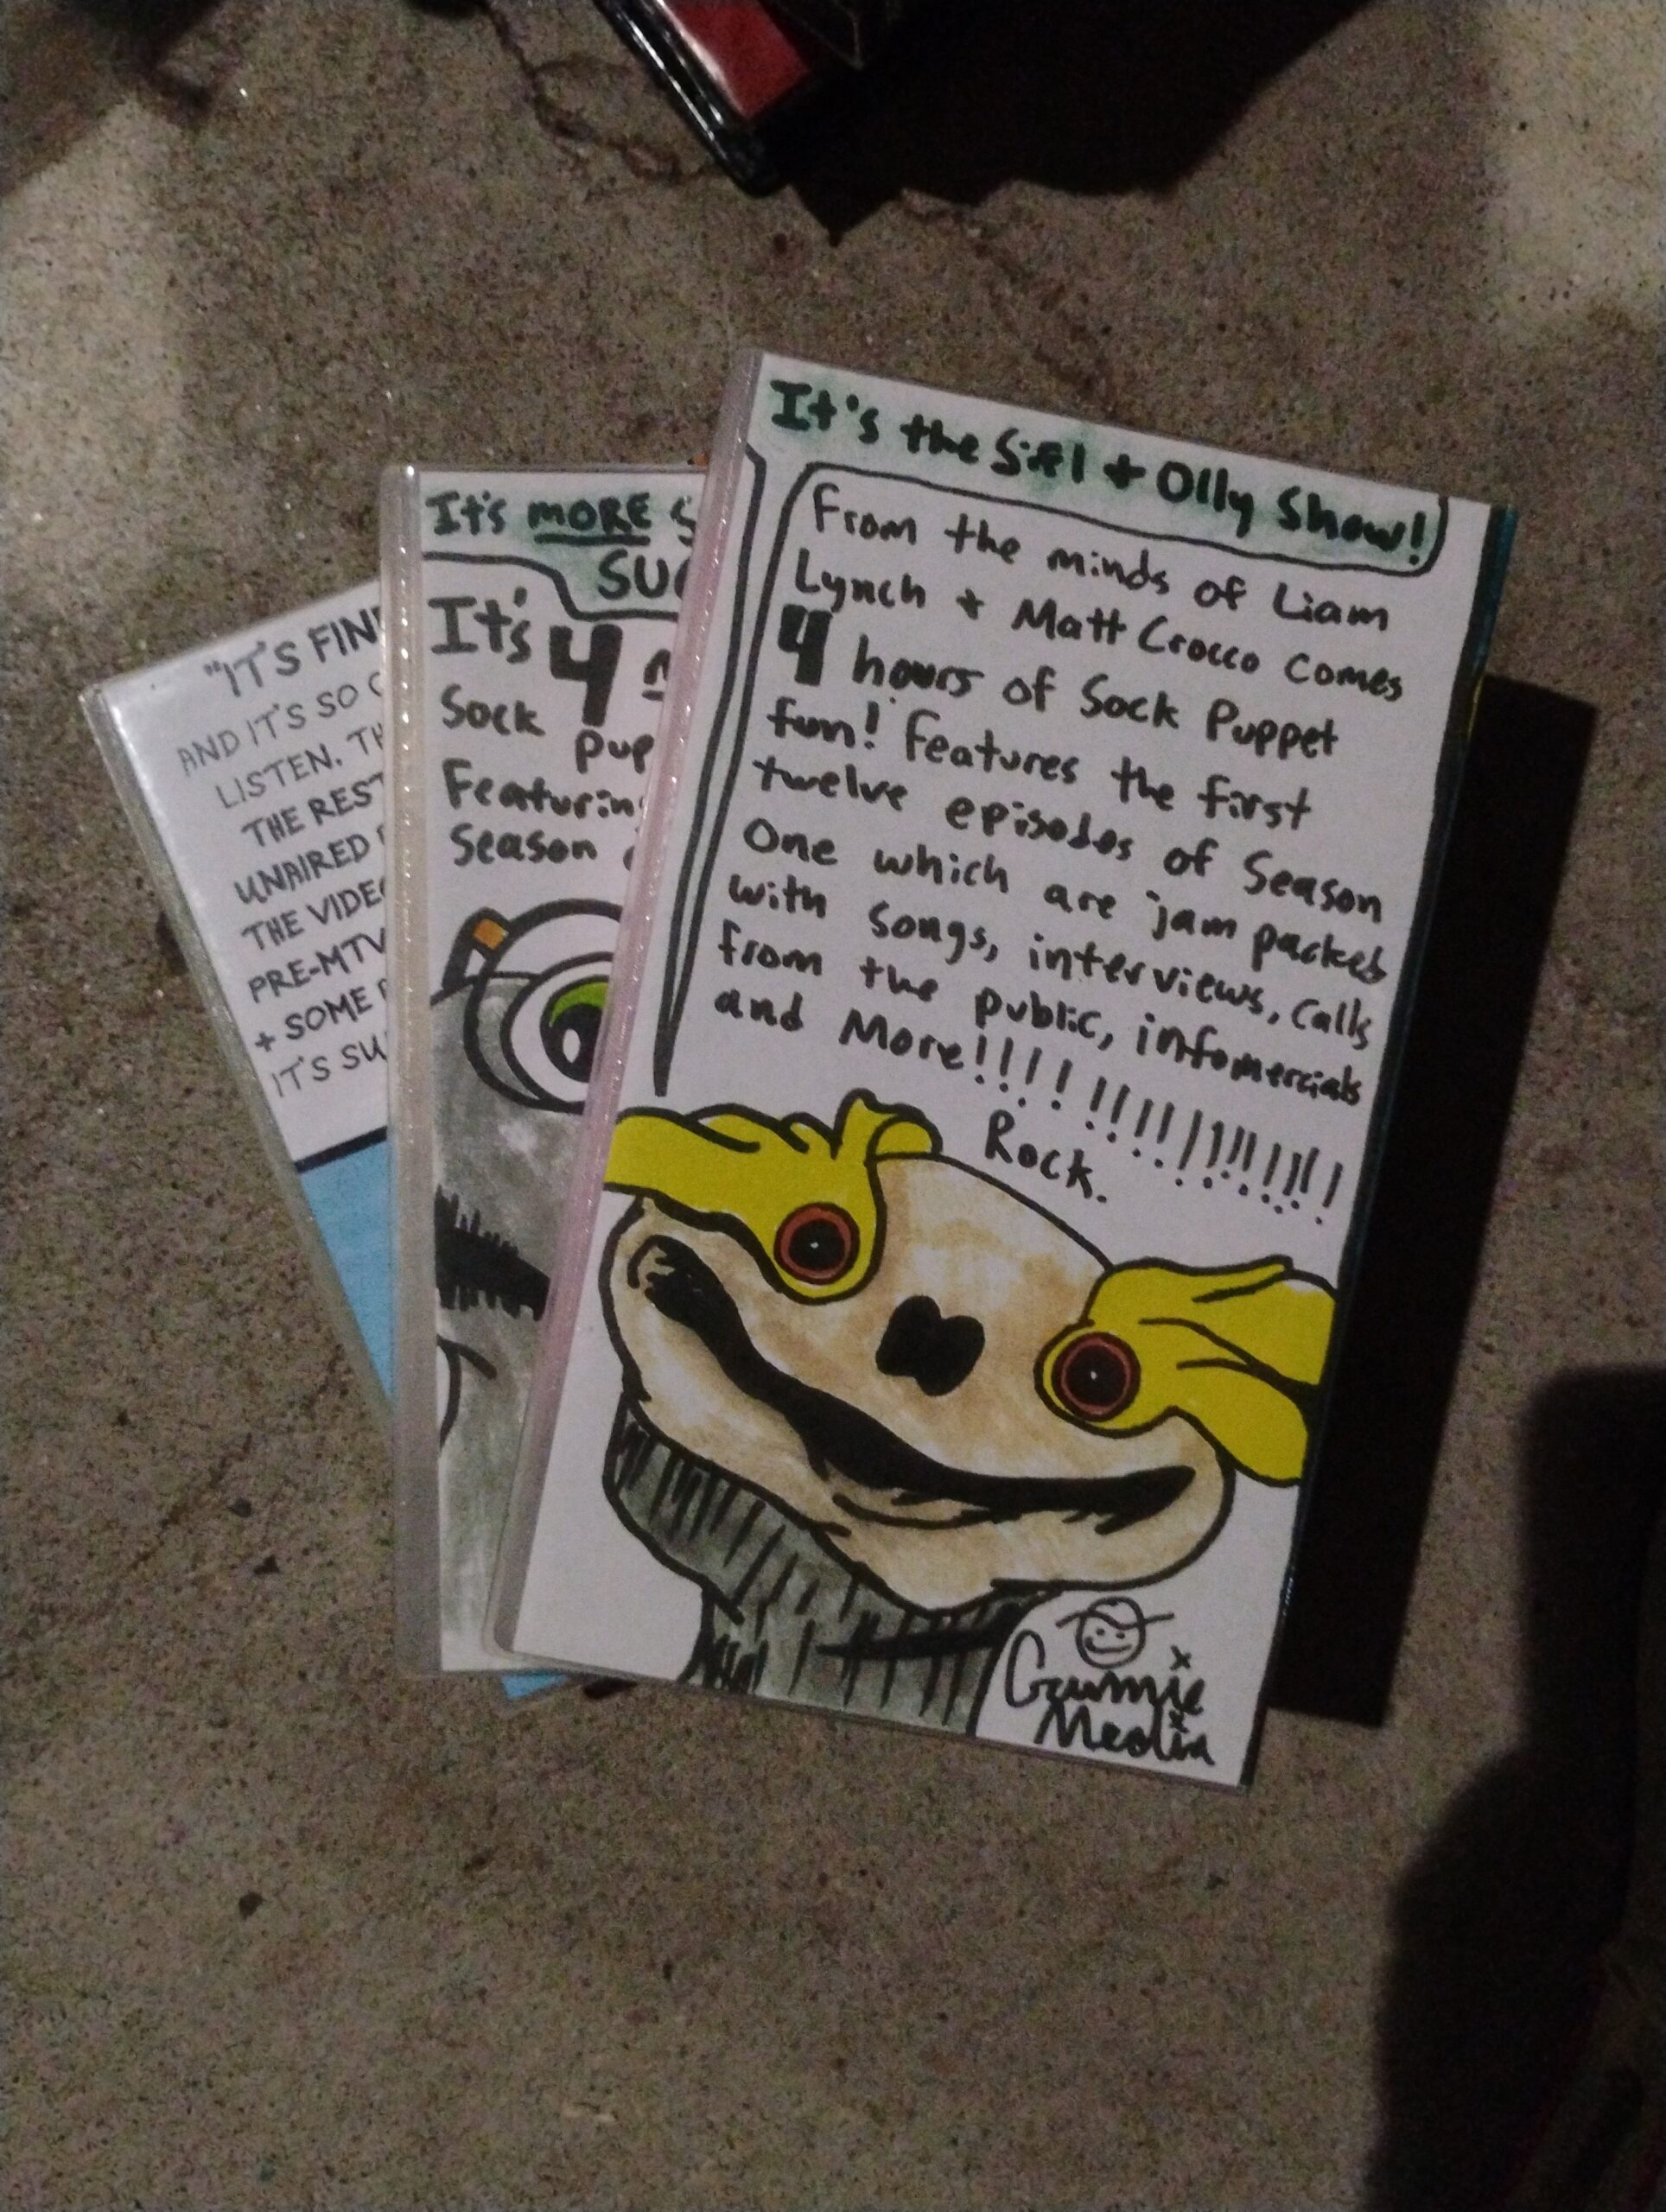 It's the Sifl + Olly Show!
From the minds of Liam
Lynch + Matt Crocco comes
4 hours of Sock Puppet
fun! Features the first
twelve episodes of Season
One which are jam packed
with Songs, interviews, calls
from the public, infomercials
and More!!!! !!!!!!!!!!!!
Rock.
Gumie
Media
It's MORE S
SU
It's 4
Sock pup
Featurin
Season
"IT'S FIN
AND IT'S SO
LISTEN. TH
THE REST
UNAIRED
THE VIDE
PRE-MTV
+ SOME
IT'S SU